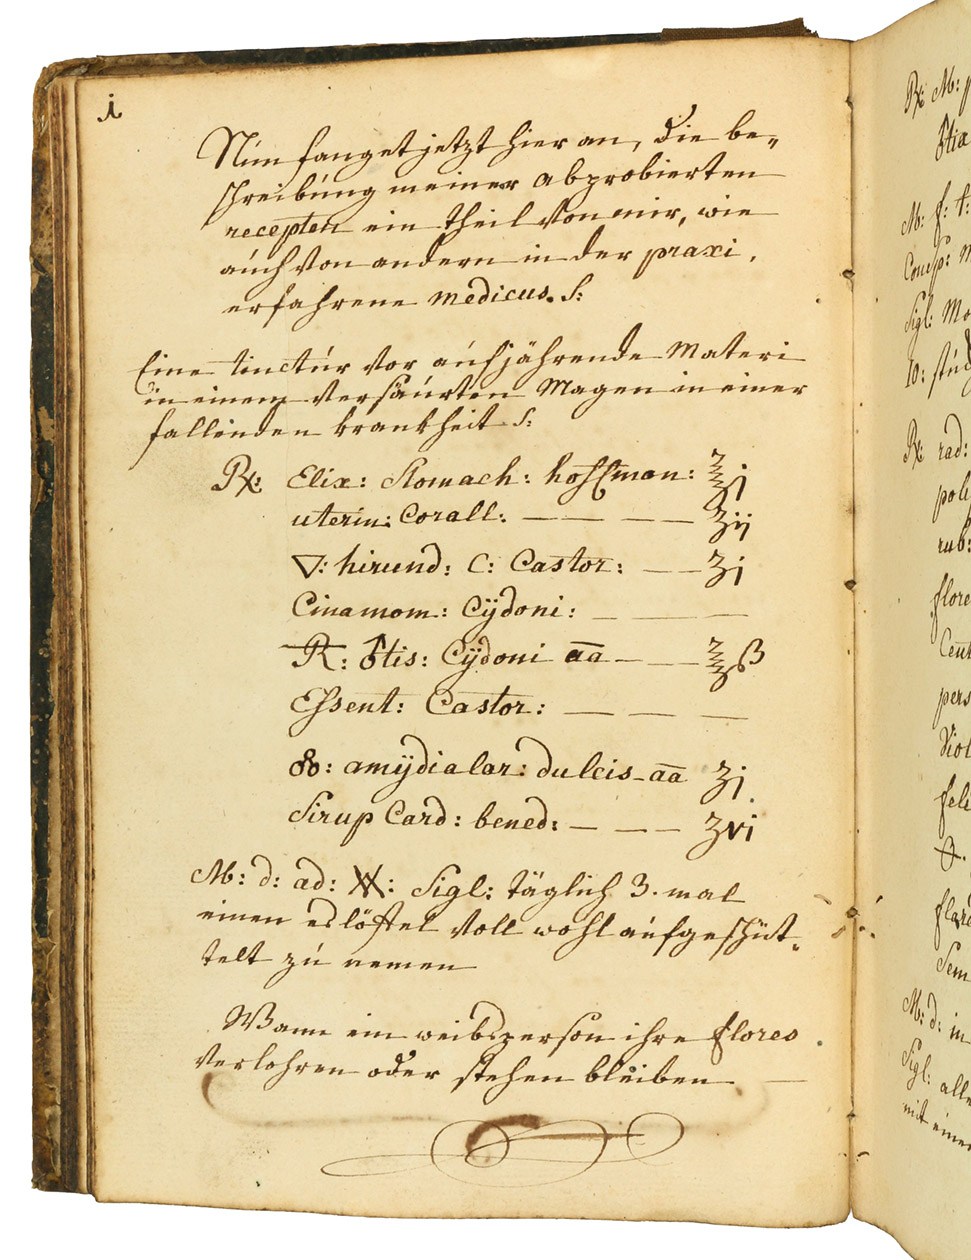 i
Nun fanget jetzt hier an, die be-
schreibung meiner abprobierten
recepten ein theil von mir, wie
auch von andern in der praxi,
erfahrene medicus. S:
Eine tinctur vor aufjährende Materi
in einem versäurten Magen in einer
fallenden krankheit S:
Rx: Elix: Stomach: hoffman: ℥j
uterin: Corall: — — — — ʒij
▽: hirund: C: Castor: — — ʒj
Cinamom: Cÿdoni: — — —
R: ♄tis: Cÿdoni aa — — ℥ß
Essent: Castor: — — —
amÿdialar: dulcis aa ʒj
Sirup Card: bened: — — — ʒvi
M: d: ad: Sigl: täglich 3. mal
einen eslöffel voll wohl aufgeschüt-
telt zu nemen
Wann ein weibsperson ihre flores
verlohren oder stehen bleiben —
Rx: M:
M: f:
Comp:
Sigl: Mo
10: stu
Rx: rad:
pole
rub:
flore
Cent
pers
Viol
Sem
M: d: in
Sigl: alle
mit einem